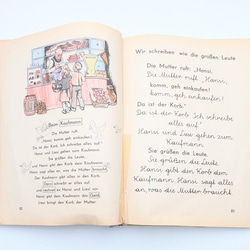 Beim Kaufmann
Die Mutter ruft:
„Hansi, komm, geh einkaufen!
Da ist der Korb.
Hansi und Liese gehen zum Kaufmann.
Sie grüßen die Leute
Hansi gibt dem Kaufmann den Korb.
und sagt alles an, was die Mutter braucht.
Der Kaufmann gibt alles in den Korb.
Dann schreibt er alles auf
und rechnet es Hansi und Liese vor.
Hansi gibt dem Kaufmann das Geld.
Wir schreiben wie die großen Leute
Die Mutter ruft: „Hansi,
Die Mutter ruft: „Hansi,
komm, geh einkaufen!
komm, geh einkaufen!
Da ist der Korb."
Da ist der Korb. Ich schreibe
alles auf."
Hansi und Liese gehen zum
Kaufmann.
Sie grüßen die Leute.
Sie grüßen die Leute.
Hansi gibt dem Korb dem
Kaufmann. Hansi sagt alles
an, was die Mutter braucht.